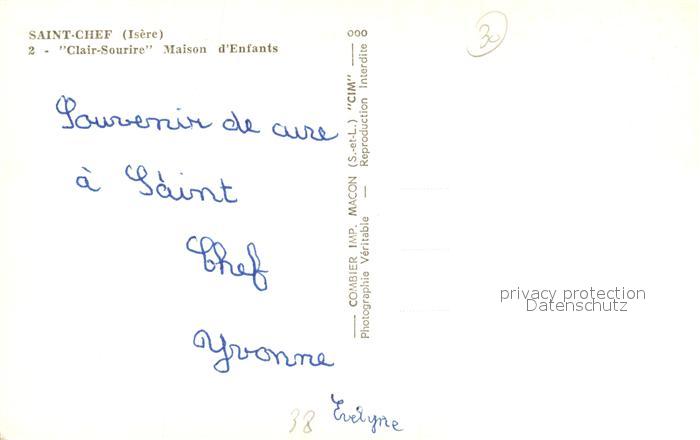 SAINT-CHEF (Isère)
2 - "Clair-Sourire" Maison d'Enfants
Souvenir de cure
à Saint
Chef
Yvonne
Evelyne
38
30
ooo
COMBIER IMP. MACON (S.-et-L.) "CIM"
Photographie Véritable — Reproduction Interdite
privacy protection
Datenschutz